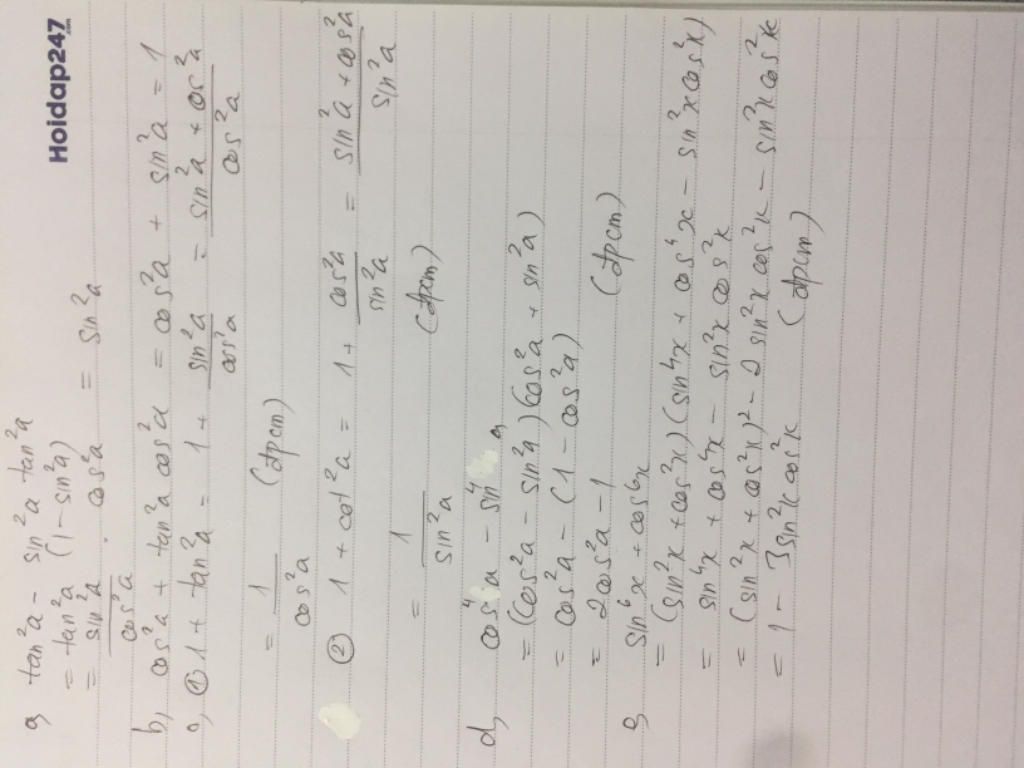 Hoidap247
a, tan²a - sin²a tan²a
= tan²a (1 - sin²a)
= sin²a/cos²a . cos²a = sin²a
b, cos²a + tan²a cos²a = cos²a + sin²a = 1
c, ① 1 + tan²a = 1 + sin²a/cos²a = sin²a + cos²a/cos²a
= 1/cos²a (đpcm)
② 1 + cot²a = 1 + cos²a/sin²a = sin²a + cos²a/sin²a
= 1/sin²a (đpcm)
d, cos⁴a - sin⁴a
= (cos²a - sin²a)(cos²a + sin²a)
= cos²a - (1 - cos²a)
= 2cos²a - 1 (đpcm)
e, sin⁶x + cos⁶x
= (sin²x + cos²x)(sin⁴x + cos⁴x - sin²x cos²x)
= sin⁴x + cos⁴x - sin²x cos²x
= (sin²x + cos²x)² - 2 sin²x cos²x - sin²x cos²x
= 1 - 3sin²x cos²x (đpcm)